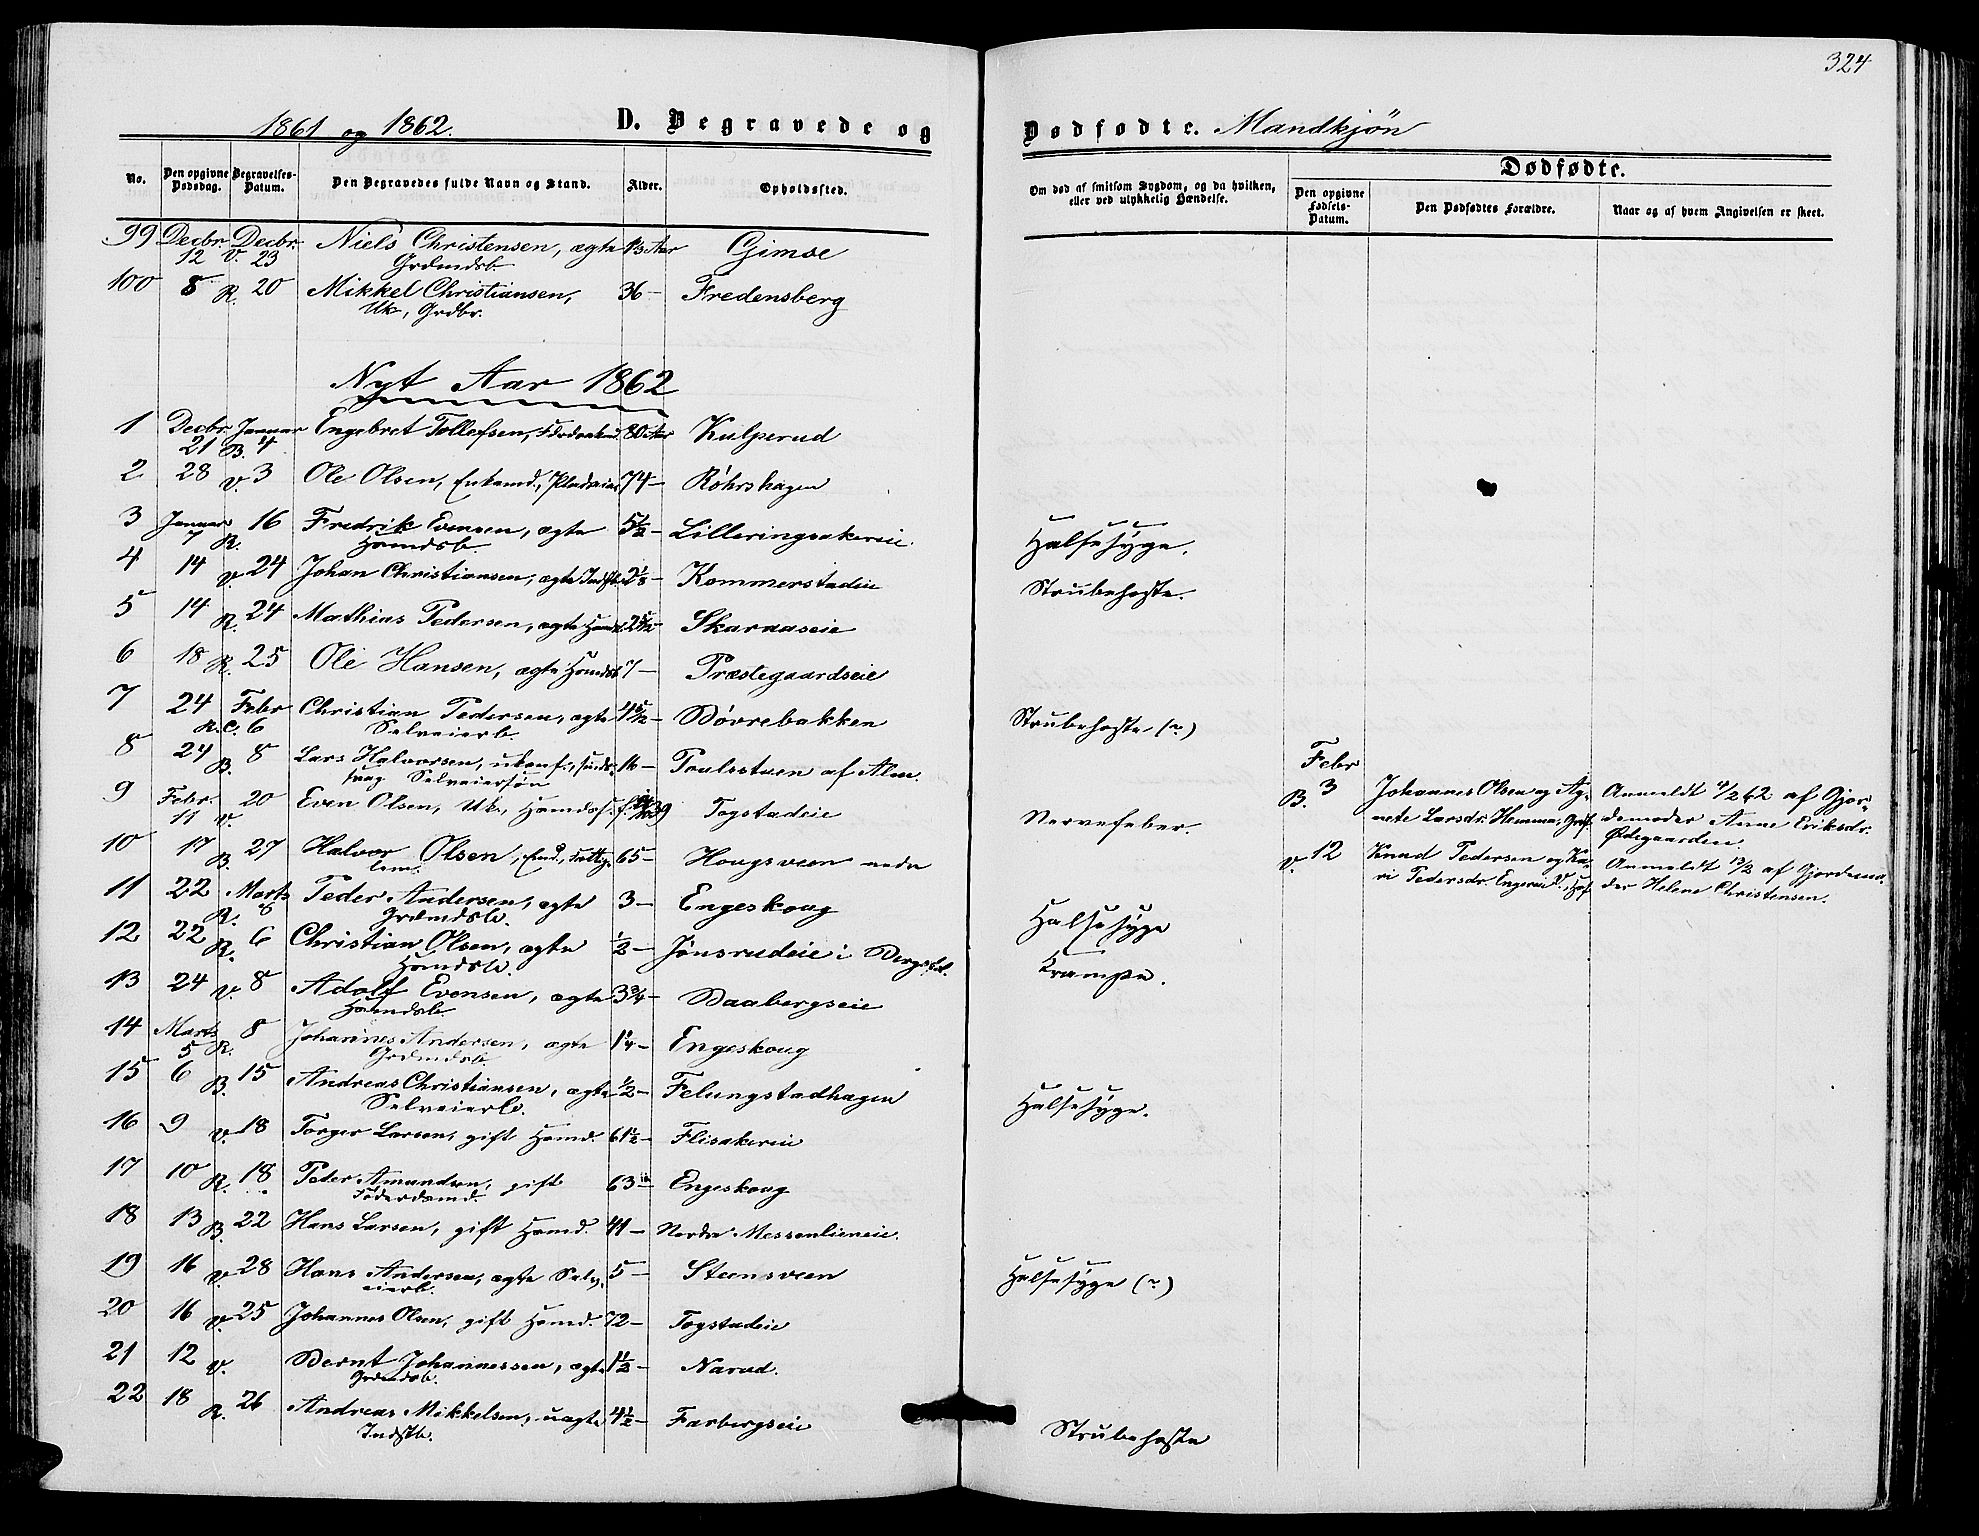 324
1861 og 1862.
D. Begravede og
Dødfødte. Mandkjön
No.
Den opgivne Dødsdag.
Begravelses-Datum.
Den Begravedes fulde Navn og Stand.
Alder.
Opholdssted.
Om død af smitsom Sygdom, og da hvilken, eller ved ulykkelig Hændelse.
Dødfødte.
Den opgivne Fødsels-Datum.
Den Dødfødtes Forældre.
Naar og af hvem Angivelsen er skeet.
99 Decbr. 12 V. Decbr. 23 Niels Christensen, ægte Grdmdsb. Aar Gimse
100 8 R. 20 Mikkel Christiansen, Uk, Grdbr. 36 — Fredensberg
Nyt Aar 1862
1 Decbr. 21 B. Januar 4 Engebret Tollefsen, 80 Aar Kulperud
2 28 V. 3 Ole Olsen, Enkemd., 74 — Röhrshagen
3 Januar 7 R. 16 Fredrik Evensen, ægte Hsmdsb. 5½ — Lilleringsakereie. Halsesyge.
4 14 V. 24 Johan Christiansen, ægte Indstb. — Kommerstadeie Strubehoste.
5 14 R. 24 Mathias Pedersen, ægte — Skaraaseie
6 18 R. 25 Ole Hansen, ægte Hsmdsb. 7 — Præstegaardseie
7 24 R.C. Febr 6 Christian Pedersen, ægte Selveierb. 4 5/12 — Bövrebakken Strubehoste (?)
8 24 B. 8 Lars Halvorsen, ukonf., Selveiersön 16 — Poulsstuen af Alm.
9 Febr. 11 V. 20 Even Olsen, Uk, Togstadeie Nervefeber.
10 17 B. 27 Halvor Olsen, Fattiglem. 65 — Hougsveen nedre
11 22 R. Marts 8 Peder Andersen, ægte Grdmdsb. 3 — Engeskoug Halsesyge
12 22 R. 6 Christian Olsen, ægte Hsmdsb. ½ — Jönsrudeie i Krampe.
13 24 V. 8 Adolf Evensen, ægte Hsmdsb. 3¾ — Baabergseie
14 Marts 5 R. 8 Johannes Andersen, ægte Grdmdsb. 1¼ — Engeskoug
15 6 B. 15 Andreas Christiansen, ægte Selveierb. ½ — Felungstadhagen Halsesyge.
16 9 V. 18 Torger Larsen, gift Hsmd. 61½ — Flisakereie
17 10 R. 18 Peder Amundsen, gift Föderdsmd. 63 — Engeskoug
18 13 B. 22 Hans Larsen, gift Hsmd. 41 — Nordre Messenlieneie.
19 16 V. 28 Hans Andersen, ægte Selveierb. 5 — Steensveen Halsesyge (?)
20 16 V. 25 Johannes Olsen, gift Hsmd. 72 — Togstadeie
21 12 V. Bernt Johannessen, ægte Grdmdsb. 1½ — Narud.
22 18 R. 26 Andreas Mikkelsen, uægte Indstb. 4½ — Farbergseie Strubehoste
Febr
B. 3 Johannes Olsen og Agnete Larsdr. Hemma, Anmeldt 4/2 62 af Gjordemoder Anne Eriksdr. Ödegaarden.
V. 12 Knud Pedersen og Kari Pedersdr. Anmeldt 13/2 af Gjordemoder Helene Christensen.